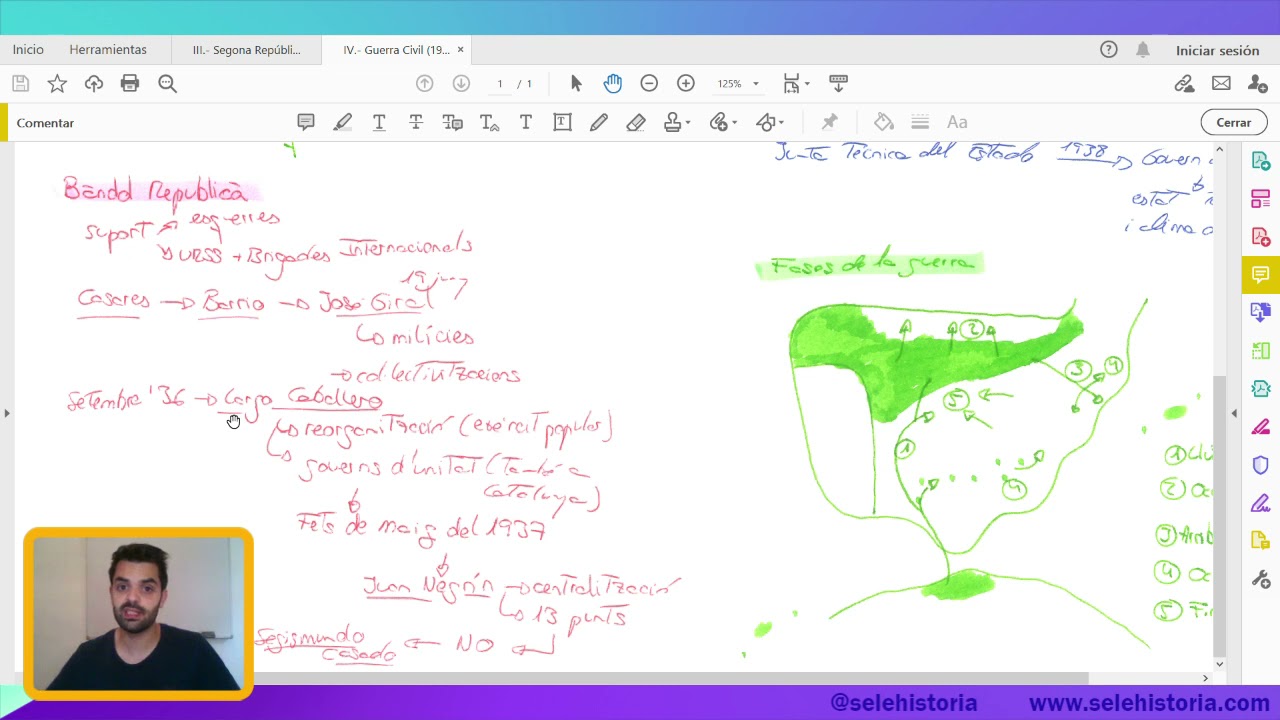 Inicio Herramientas III.- Segona Repúbli... IV.- Guerra Civil (19... × Iniciar sesión
1 / 1 125%
Comentar Aa Cerrar
Junta Tecnica del Estado 1938 Govern
estat
i
Bàndol Republicà
suport esquerres
URSS + Brigades Internacionals
19 juny
Casares → Barrio → José Giral
milícies
→ col·lectivitzacions
Setembre '36 → Largo Caballero
reorganització (exèrcit popular)
governs d'unitat (també a
Catalunya)
Fets de maig del 1937
Juan Negrín → centralització
13 punts
Segismundo
Casado ← NO
Fases de la guerra
2
3 4
5
1
4
1
2
3
4
5
@selehistoria www.selehistoria.com